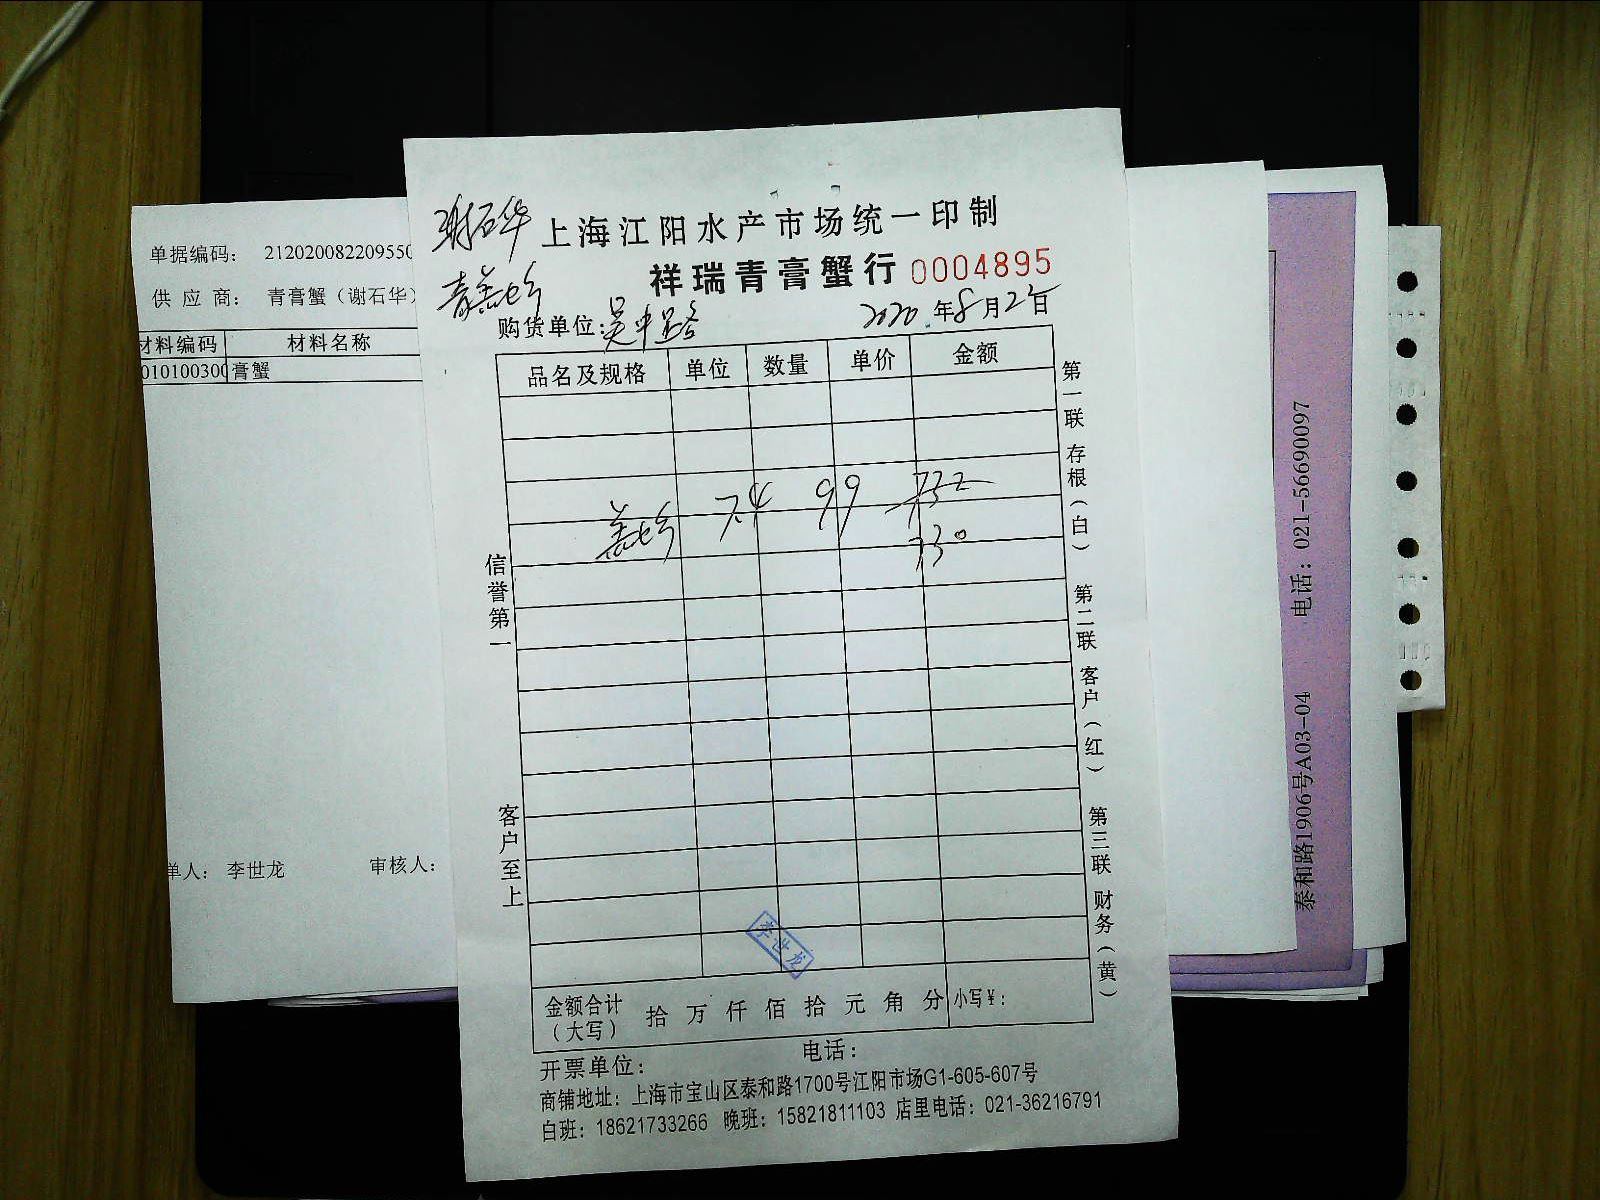 单据编码： 212020082209550
供 应 商： 青膏蟹（谢石华）
材料编码 材料名称
010100300 膏蟹
单人： 李世龙 审核人：
谢石华
上海江阳水产市场统一印制
祥瑞青膏蟹行 0004895
购货单位：吴中路 2020 年8月2 日
品名及规格 单位 数量 单价 金额
7.4 99 732
730
信誉第一
客户至上
第一联 存根（白） 第二联 客户（红） 第三联 财务（黄）
李世龙
金额合计（大写） 拾 万 仟 佰 拾 元 角 分 小写¥：
开票单位： 电话：
商铺地址：上海市宝山区泰和路1700号江阳市场G1-605-607号
白班：18621733266 晚班：15821811103 店里电话：021-36216791
泰和路1906号A03-04 电话：021-56690097